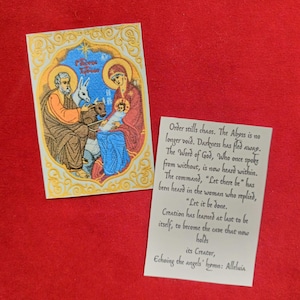 Order stills chaos. The Abyss is no
longer void. Darkness has fled away.
The Word of God, Who once spoke
from without, is now heard within.
The command, "Let there be" has
been heard in the woman who replied,
"Let it be done.
Creation has learned at last to be
itself, to become the one that now
holds
its Creator,
Echoing the angels' hymn: Alleluia.